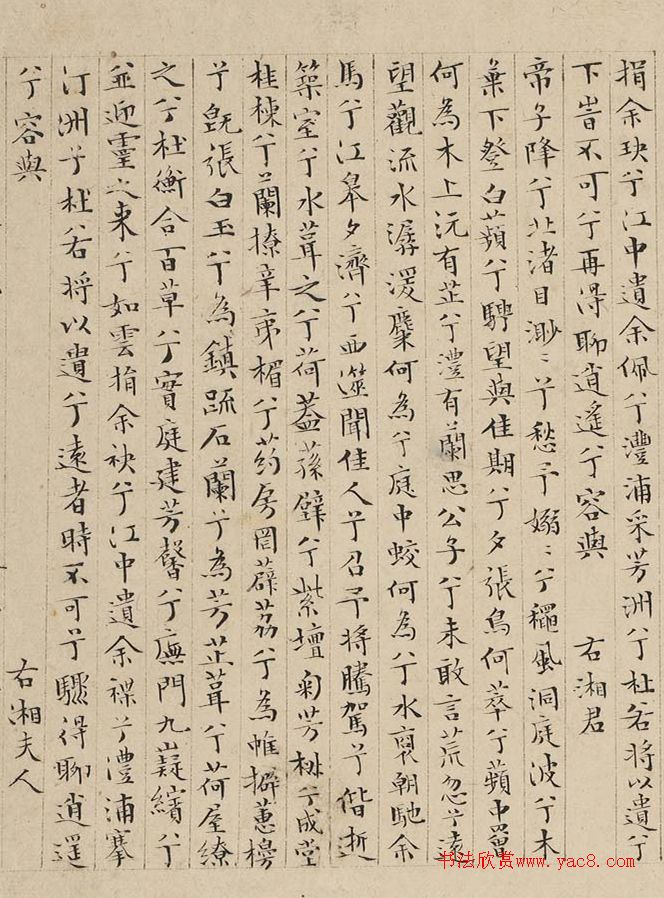 捐余玦兮江中遺余佩兮澧浦采芳洲兮杜若將以遺兮
下旹不可兮再得聊逍遙兮容與　右湘君
帝子降兮北渚目渺〻兮愁予嫋〻兮穐風洞庭波兮木
葉下登白蘋兮騁望與佳期兮夕張鳥何萃兮蘋中罾
何為木上沅有芷兮澧有蘭思公子兮未敢言荒忽兮遠
望觀流水潺湲麋何為兮庭中蛟何為兮水裔朝馳余
馬兮江皋夕濟兮西澨聞佳人兮召予將騰駕兮偕逝
築室兮水葺之兮荷蓋蓀壁兮紫壇匊芳椒兮成堂
桂棟兮蘭橑辛夷楣兮葯房罔薜荔兮為帷擗蕙櫋
兮既張白玉兮為鎮疏石蘭兮為芳芷葺兮荷屋繚
之兮杜衡合百草兮實庭建芳馨兮廡門九嶷繽兮
並迎靈之來兮如雲捐余袂兮江中遺余褋兮澧浦搴
汀洲兮杜若將以遺兮遠者時不可兮驟得聊逍遙
兮容與
右湘夫人
书法欣赏www.yac8.com